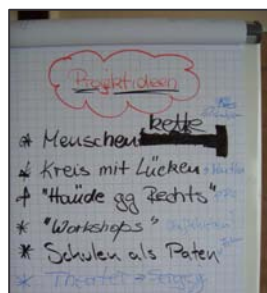 Projektideen
* Menschenkette
* Kreis mit Lücken
* "Hände gg Rechts"
* "Workshops"
* Schulen als Paten
* Theater